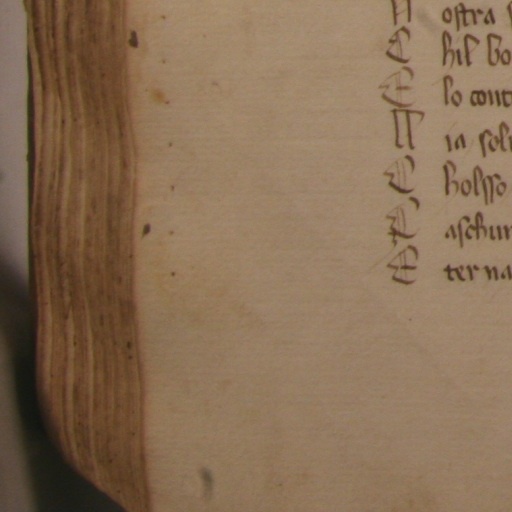 N ostra
E hil bo
E lo cont
N ia sol
E holsso
E aschur
E ter na